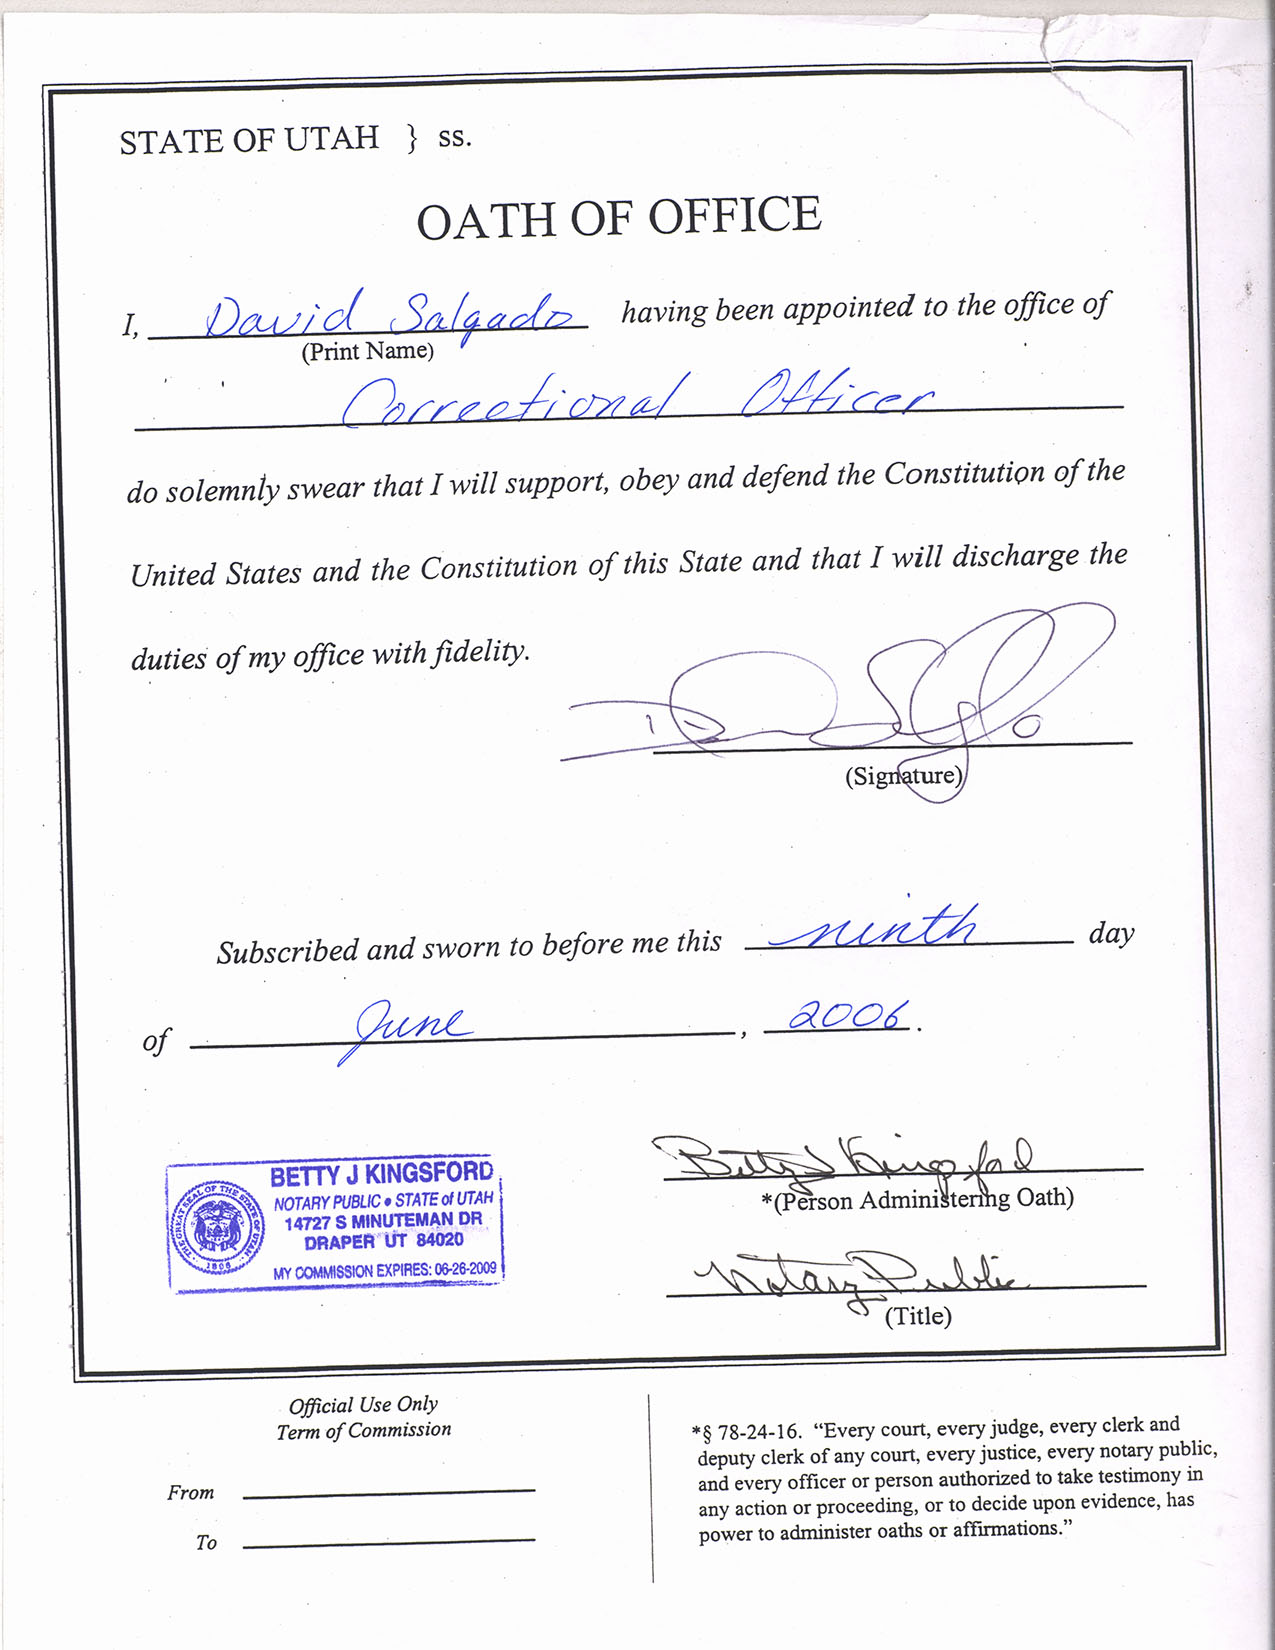 STATE OF UTAH } ss.
OATH OF OFFICE
I, David Salgado having been appointed to the office of
(Print Name)
Correctional Officer
do solemnly swear that I will support, obey and defend the Constitution of the
United States and the Constitution of this State and that I will discharge the
duties of my office with fidelity.
(Signature)
Subscribed and sworn to before me this ninth day
of June, 2006.
Betty J Kingsford
*(Person Administering Oath)
Notary Public
(Title)
BETTY J KINGSFORD
NOTARY PUBLIC • STATE of UTAH
14727 S MINUTEMAN DR
DRAPER UT 84020
MY COMMISSION EXPIRES: 06-26-2009
THE GREAT SEAL OF THE STATE OF UTAH
1896
Official Use Only
Term of Commission
From
To
*§ 78-24-16. “Every court, every judge, every clerk and
deputy clerk of any court, every justice, every notary public,
and every officer or person authorized to take testimony in
any action or proceeding, or to decide upon evidence, has
power to administer oaths or affirmations.”